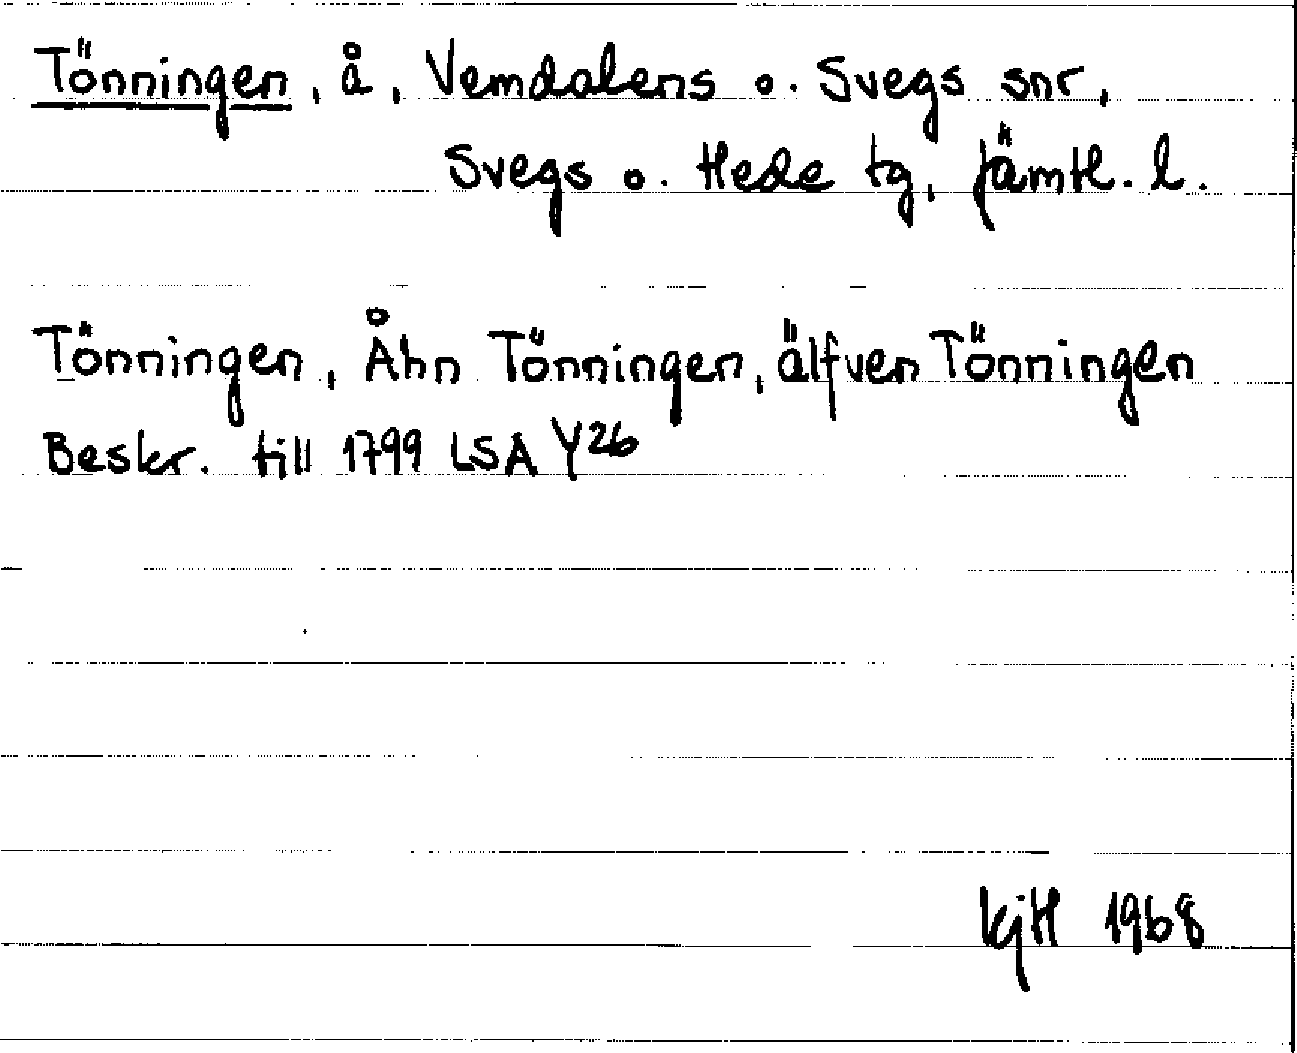 Tönningen, å, Vemdalens o. Svegs snr,
Svegs o. Hede tg, Jämtl. l.
Tönningen, Åhn Tönningen, älfven Tönningen
Beskr. till 1799 LSA Y26
KjH 1968